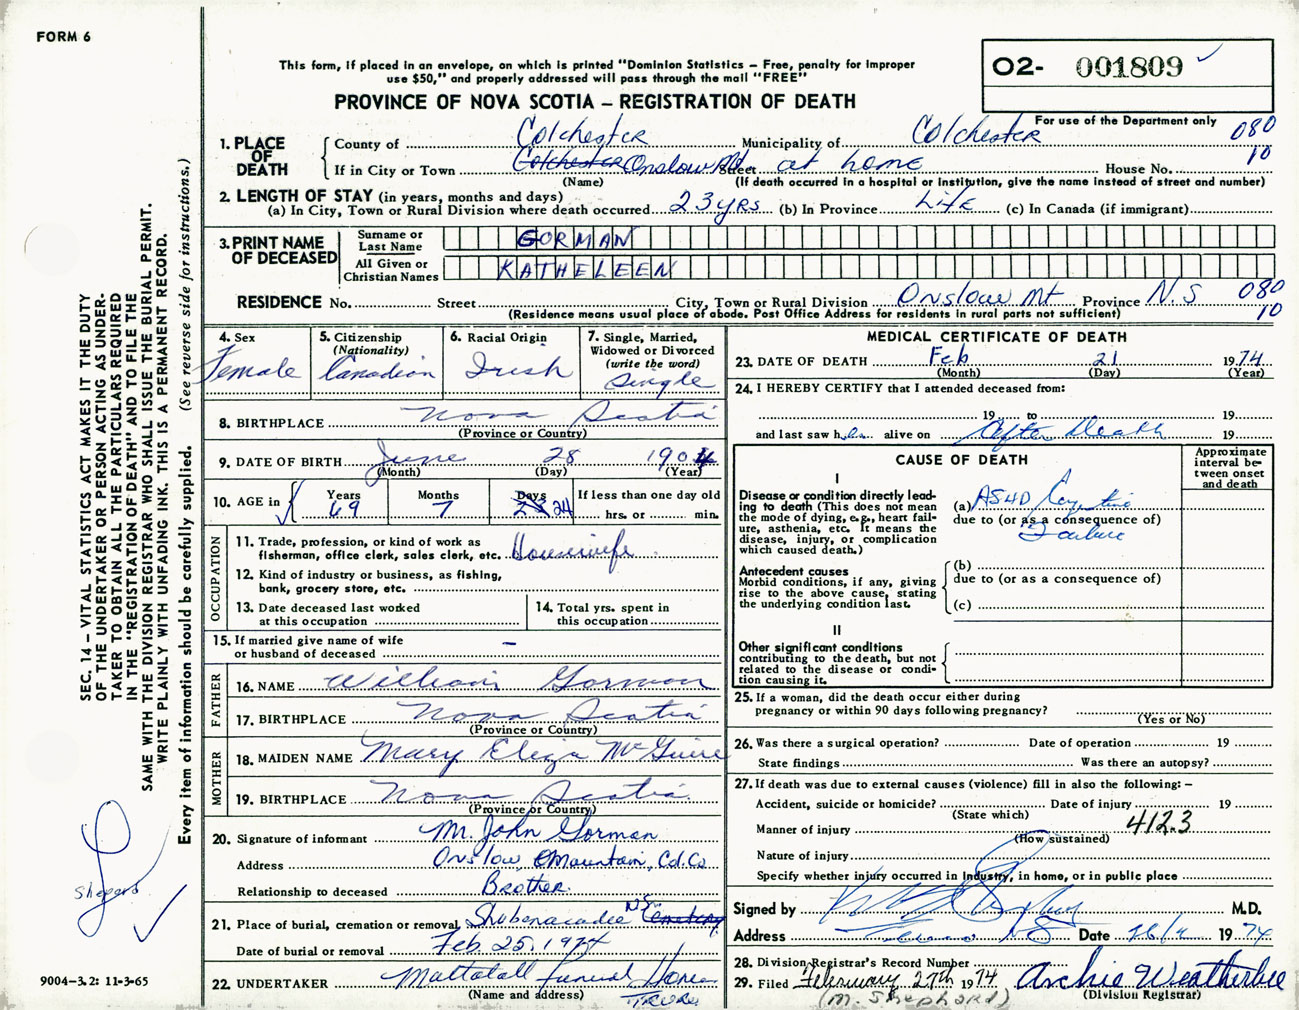 FORM 6
This form, if placed in an envelope, on which is printed "Dominion Statistics – Free, penalty for improper
use $50," and properly addressed will pass through the mail "FREE"
PROVINCE OF NOVA SCOTIA – REGISTRATION OF DEATH
02- 001809
For use of the Department only
080
10
1. PLACE OF DEATH
County of Colchester Municipality of Colchester
If in City or Town Colchester Onslow Mt. Street at home House No.
(Name) (If death occurred in a hospital or institution, give the name instead of street and number)
2. LENGTH OF STAY (in years, months and days)
(a) In City, Town or Rural Division where death occurred 23 yrs (b) In Province Life (c) In Canada (if immigrant)
3. PRINT NAME OF DECEASED
Surname or Last Name GORMAN
All Given or Christian Names KATHELEEN
RESIDENCE No. Street City, Town or Rural Division Onslow Mt Province N.S 080
(Residence means usual place of abode. Post Office Address for residents in rural parts not sufficient) 10
4. Sex Female
5. Citizenship (Nationality) Canadian
6. Racial Origin Irish
7. Single, Married, Widowed or Divorced (write the word) Single
8. BIRTHPLACE Nova Scotia
(Province or Country)
9. DATE OF BIRTH June 28 1904
(Month) (Day) (Year)
10. AGE in Years 69 Months 7 Days 24 If less than one day old
hrs. or min.
OCCUPATION
11. Trade, profession, or kind of work as
fisherman, office clerk, sales clerk, etc. Housewife
12. Kind of industry or business, as fishing,
bank, grocery store, etc.
13. Date deceased last worked
at this occupation
14. Total yrs. spent in
this occupation
15. If married give name of wife
or husband of deceased –
FATHER
16. NAME William Gorman
17. BIRTHPLACE Nova Scotia
(Province or Country)
MOTHER
18. MAIDEN NAME Mary Eliza McGuire
19. BIRTHPLACE Nova Scotia
(Province or Country)
20. Signature of informant M. John Gorman
Address Onslow Mountain, Col. Co
Relationship to deceased Brother
21. Place of burial, cremation or removal Shubenacadie N.S. Cemetery
Date of burial or removal Feb. 25, 1974
22. UNDERTAKER Mattatall Funeral Home
(Name and address) Truro
MEDICAL CERTIFICATE OF DEATH
23. DATE OF DEATH Feb 21 1974
(Month) (Day) (Year)
24. I HEREBY CERTIFY that I attended deceased from:
19 to 19
and last saw her alive on After Death 19
CAUSE OF DEATH
Approximate interval between onset and death
I
Disease or condition directly lead-
ing to death (This does not mean
the mode of dying, e.g., heart fail-
ure, asthenia, etc. It means the
disease, injury, or complication
which caused death.)
(a) ASHD Congestive
due to (or as a consequence of)
Failure
Antecedent causes
Morbid conditions, if any, giving
rise to the above cause, stating
the underlying condition last.
(b)
due to (or as a consequence of)
(c)
II
Other significant conditions
contributing to the death, but not
related to the disease or condi-
tion causing it.
25. If a woman, did the death occur either during
pregnancy or within 90 days following pregnancy?
(Yes or No)
26. Was there a surgical operation? Date of operation 19
State findings Was there an autopsy?
27. If death was due to external causes (violence) fill in also the following: –
Accident, suicide or homicide? Date of injury 19
(State which)
Manner of injury 412.3
(How sustained)
Nature of injury
Specify whether injury occurred in industry, in home, or in public place
Signed by M.D.
Address Truro NS Date 1974
28. Division Registrar's Record Number
29. Filed February 27th 1974 Archie Weatherbee
(M. Shephard) (Division Registrar)
SEC. 14 – VITAL STATISTICS ACT MAKES IT THE DUTY
OF THE UNDERTAKER OR PERSON ACTING AS UNDER-
TAKER TO OBTAIN ALL THE PARTICULARS REQUIRED
IN THE "REGISTRATION OF DEATH" AND TO FILE THE
SAME WITH THE DIVISION REGISTRAR WHO SHALL ISSUE THE BURIAL PERMIT.
WRITE PLAINLY WITH UNFADING INK. THIS IS A PERMANENT RECORD.
Every item of information should be carefully supplied. (See reverse side for instructions.)
9004-3.2: 11-3-65